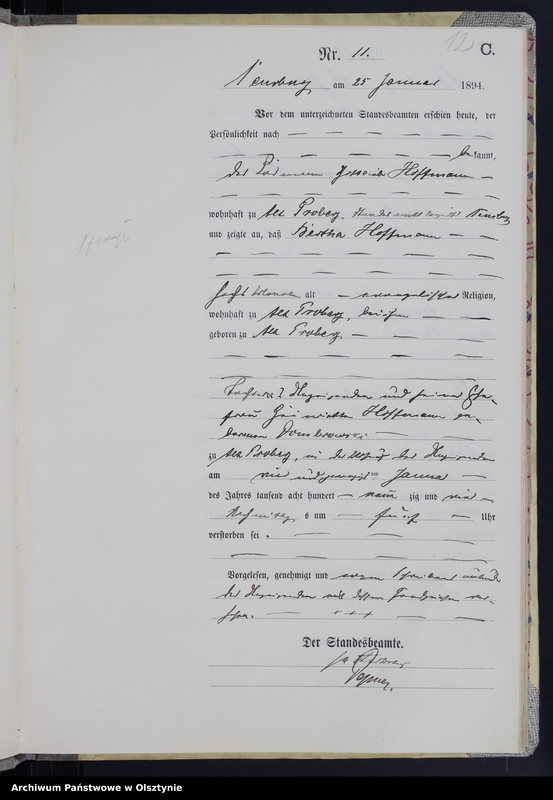 12 C.
Nr. 11.
am 25 Januar 1894.
Vor dem unterzeichneten Standesbeamten erschien heute, der
Persönlichkeit nach
bekannt,
der Hoffmann
wohnhaft zu Alt Proberg,
und zeigte an, daß Bertha Hoffmann
sechs Monate alt evangelischer Religion,
wohnhaft zu Alt Proberg,
geboren zu Alt Proberg
Tochter des Anzeigenden und seiner Ehe-
frau Hoffmann ge-
borenen Dombrowski
zu Alt Proberg, in der des Anzeigenden
am vier und zwanzigsten Januar
des Jahres tausend acht hundert neun zig und vier
Nachmittags um fünf Uhr
verstorben sei.
Vorgelesen, genehmigt und wegen
des Anzeigenden mit dessen Handzeichen ver-
sehen. +++
Der Standesbeamte.
Archiwum Państwowe w Olsztynie